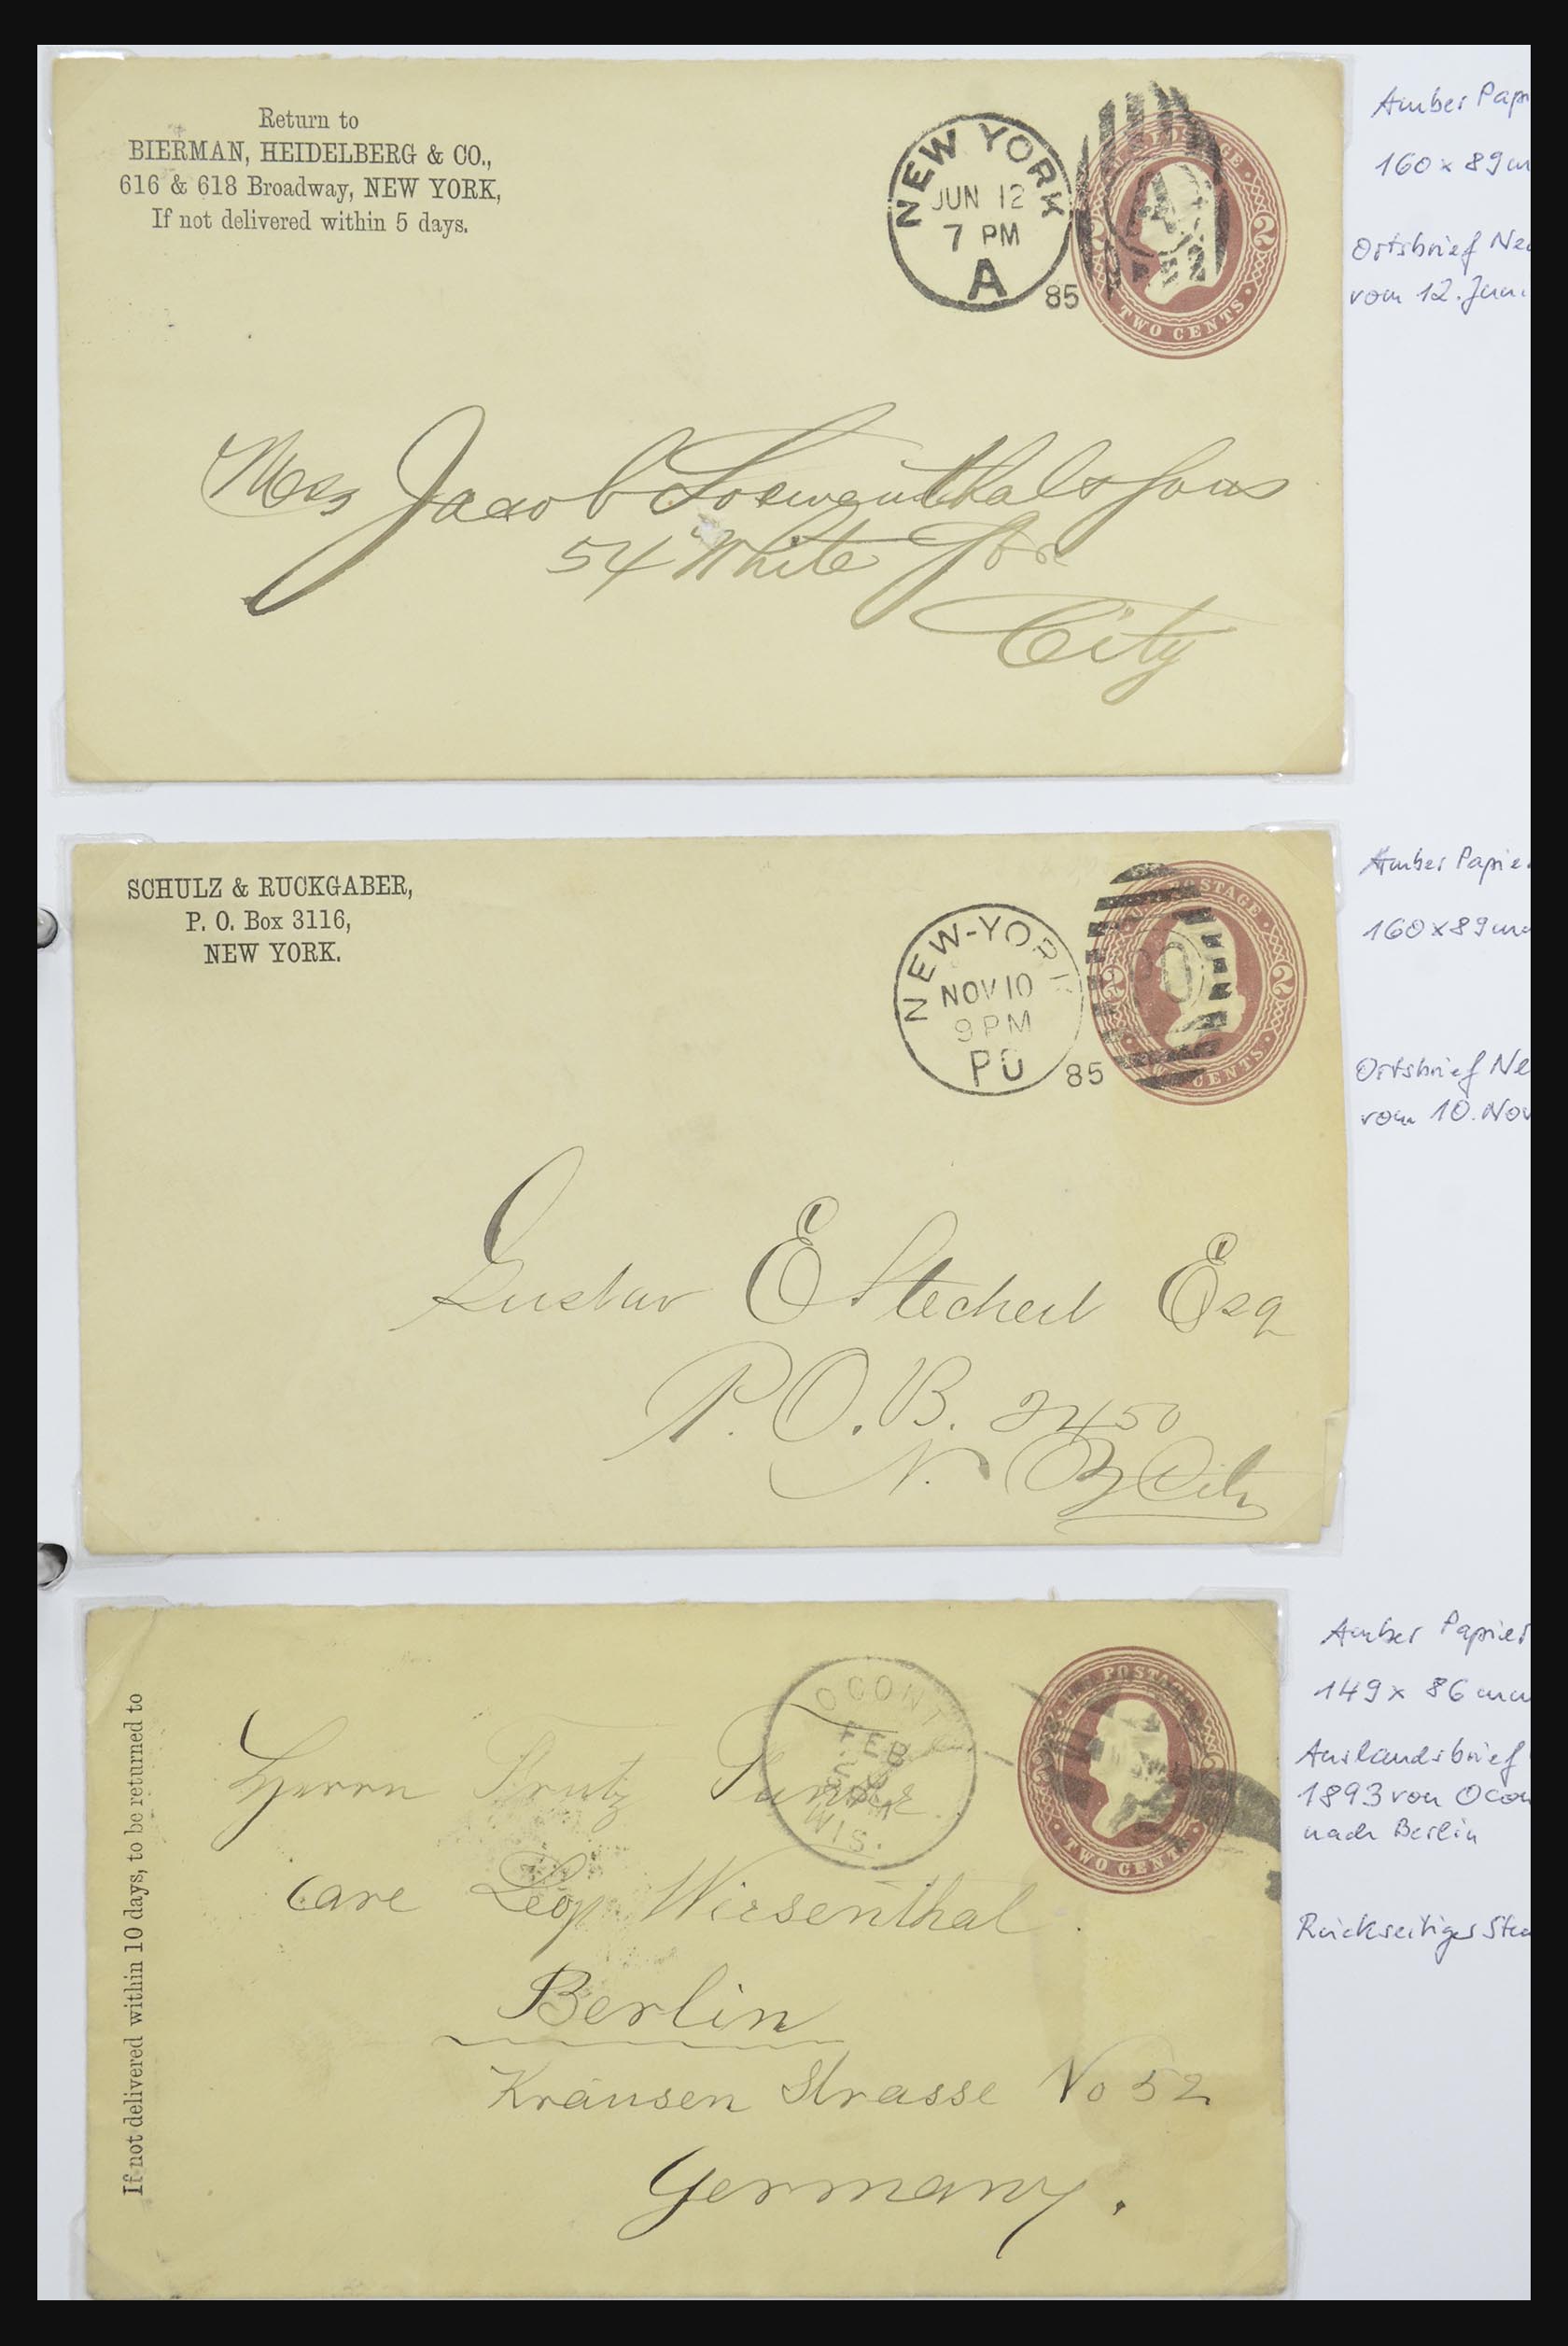 Return to
BIERMAN, HEIDELBERG & CO.,
616 & 618 Broadway, NEW YORK,
If not delivered within 5 days.
NEW YORK
JUN 12
7 PM
A
85
2 2
TWO CENTS
Amber Papi
160 x 89 m
Ortsbrief Ne
vom 12. Juni
Jacob Loewenthal & Sons
54 White Str
City
SCHULZ & RUCKGABER,
P. O. Box 3116,
NEW YORK.
NEW-YORK
NOV 10
9 PM
PO
85
POSTAGE
2 2
CENTS
Amber Papie
160 x 89 mm
Ortsbrief Ne
vom 10. Nov
Gustav E Stechert Esq
P. O. B. 2450
N. Y City
If not delivered within 10 days, to be returned to
OCONT
FEB
WIS.
U.S. POSTAGE
2
TWO CENTS
Amber Papier
149 x 86 mm
Auslandsbrief
1893 von Ocon
nach Berlin
Rückseitiger Ste
Herrn
care Leop. Wiesenthal.
Berlin
Krausen Strasse No 52
Germany.